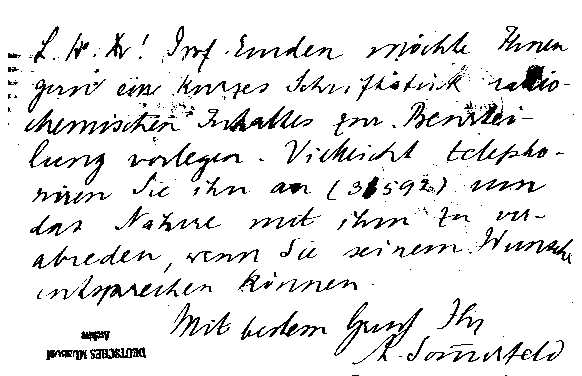 L. H. Dr! Prof. Emden möchte Ihnen
gern ein kurzes Schriftstück radio-
chemischen Inhaltes zur Beurtei-
lung vorlegen. Vielleicht telepho-
nieren Sie ihn an (31592) um
das Nähere mit ihm zu ver-
abreden, wenn Sie seinem Wunsche
entsprechen können.
Mit bestem Gruß Ihr
A. Sommerfeld
DEUTSCHES MUSEUM
Archiv